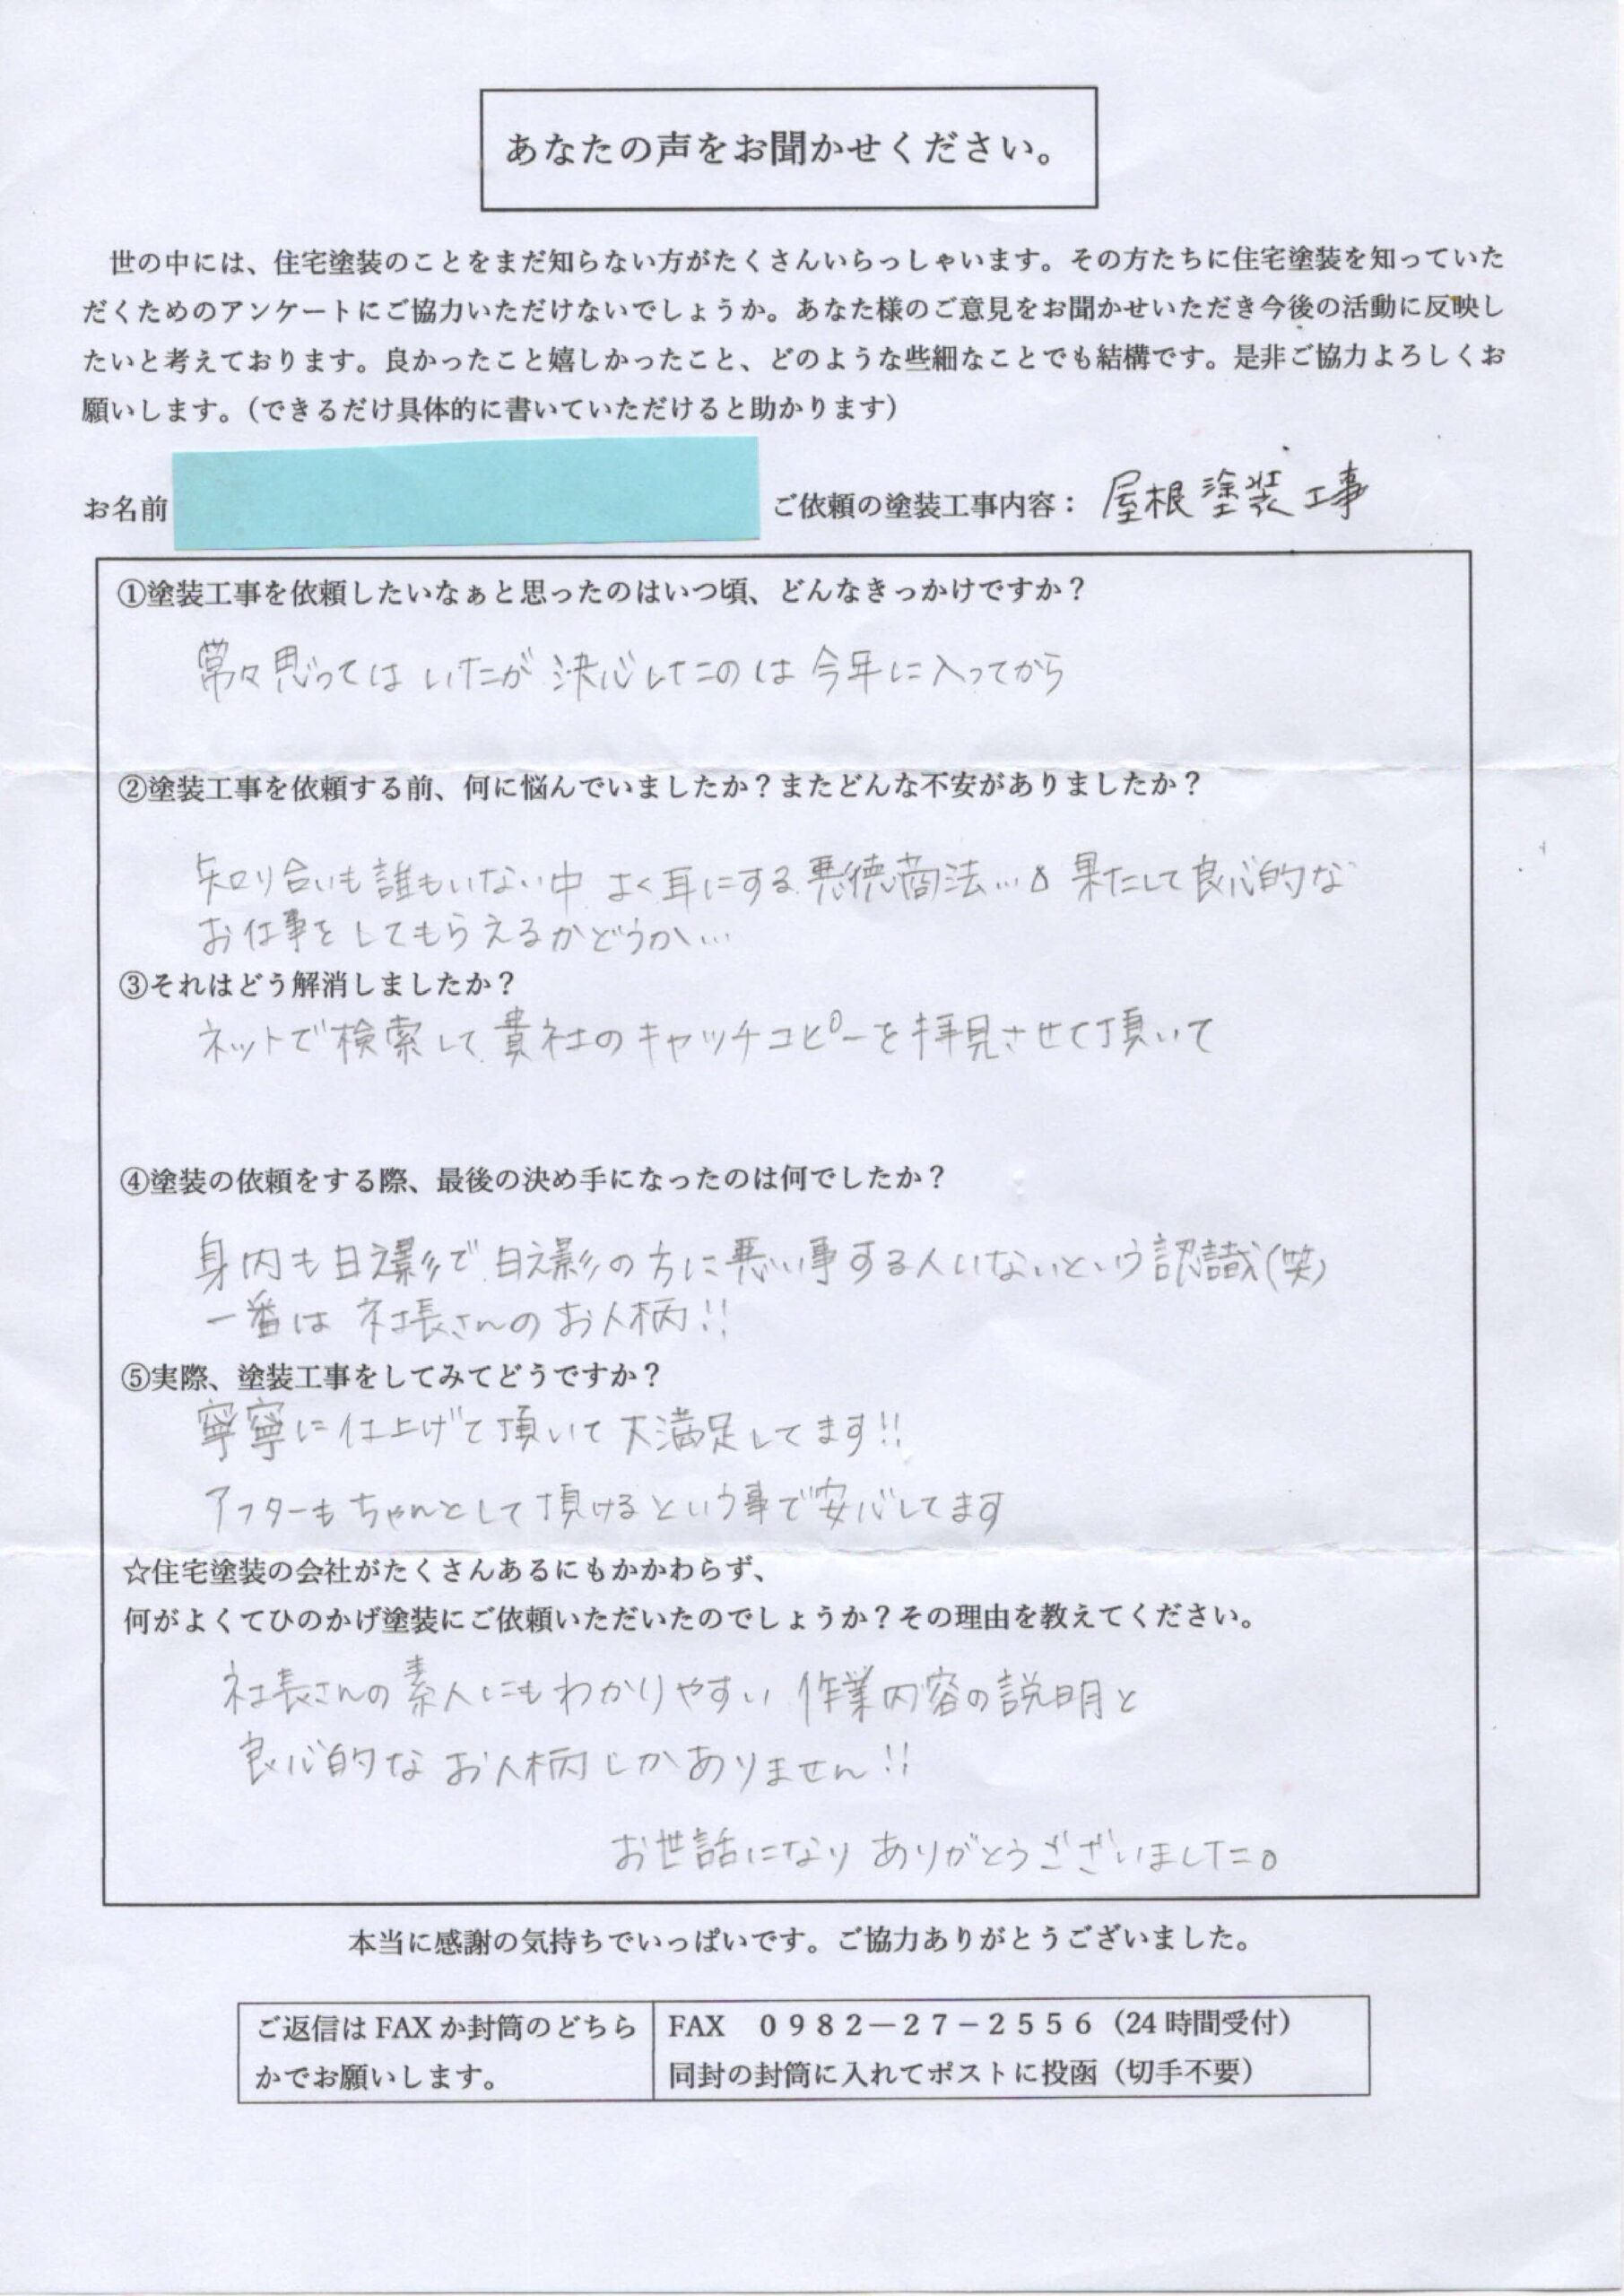 あなたの声をお聞かせください。
世の中には、住宅塗装のことをまだ知らない方がたくさんいらっしゃいます。その方たちに住宅塗装を知っていた
だくためのアンケートにご協力いただけないでしょうか。あなた様のご意見をお聞かせいただき今後の活動に反映し
たいと考えております。良かったこと嬉しかったこと、どのような些細なことでも結構です。是非ご協力よろしくお
願いします。（できるだけ具体的に書いていただけると助かります）
お名前 ご依頼の塗装工事内容： 屋根塗装工事
①塗装工事を依頼したいなぁと思ったのはいつ頃、どんなきっかけですか？
常々思ってはいたが 決心したのは今年に入ってから
②塗装工事を依頼する前、何に悩んでいましたか？またどんな不安がありましたか？
知り合いも誰もいない中 よく耳にする悪徳商法…。果たして良心的な
お仕事をしてもらえるかどうか…
③それはどう解消しましたか？
ネットで検索して貴社のキャッチコピーを拝見させて頂いて
④塗装の依頼をする際、最後の決め手になったのは何でしたか？
身内も日之影で日之影の方に悪い事する人いないという認識(笑)
一番は 社長さんのお人柄!!
⑤実際、塗装工事をしてみてどうですか？
寧寧に仕上げて頂いて大満足してます!!
アフターもちゃんとして頂けるという事で安心してます
☆住宅塗装の会社がたくさんあるにもかかわらず、
何がよくてひのかげ塗装にご依頼いただいたのでしょうか？その理由を教えてください。
社長さんの素人にもわかりやすい 作業内容の説明と
良心的な お人柄しかありません!!
お世話になり ありがとうございました。
本当に感謝の気持ちでいっぱいです。ご協力ありがとうございました。
ご返信は FAX か封筒のどちら
かでお願いします。
FAX　０９８２－２７－２５５６（24 時間受付）
同封の封筒に入れてポストに投函（切手不要）